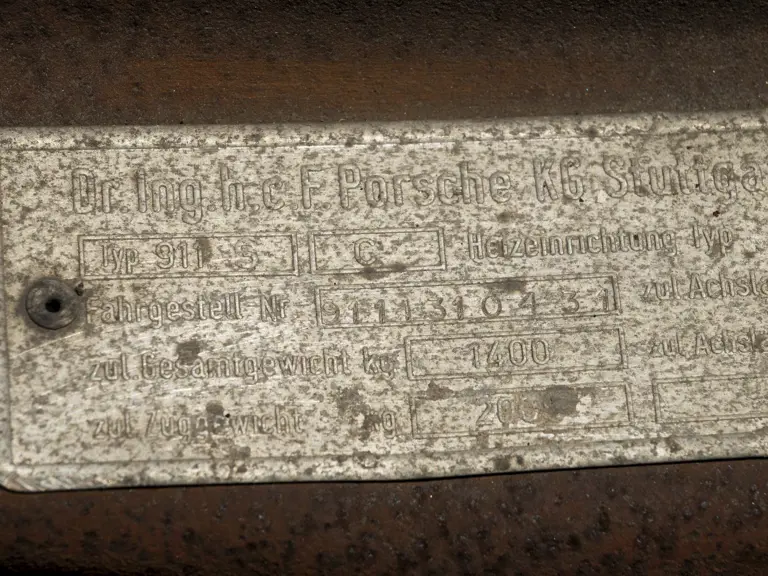 Dr. Ing. h.c F Porsche KG Stuttga
Typ 911 S C Heizeinrichtung Typ
Fahrgestell Nr 9111310431 zul. Achsla
zul. Gesamtgewicht kg 1400 zul. Achsla
zul. Zuggewicht kg